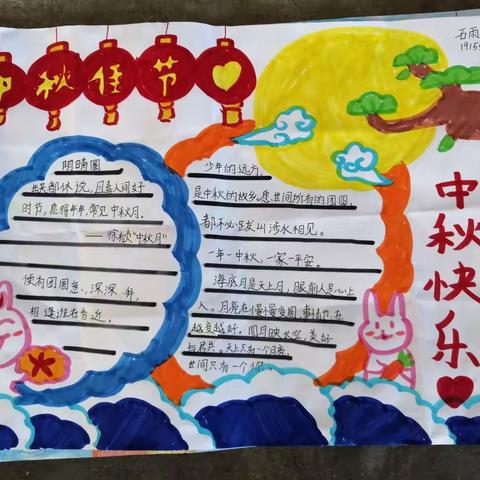 中秋佳节
石雨
1915
阴晴圆
缺都休说,且喜人间好
时节。愿得年年,常见中秋月。
——徐有贞"中秋月"
便有团圆意,深深拜,
相逢谁在香径。
少年的远方,
是中秋的故乡。愿世间所有的团圆,
都不必跋山涉水相见。
一年一中秋,一家一平安。
海底月是天上月,眼前人是心上
人。月亮在慢慢变圆,事情也在
越变越好。圆月映长空,美好
与君共。天上只有一个月亮,
世间只有一个你。
中秋快乐